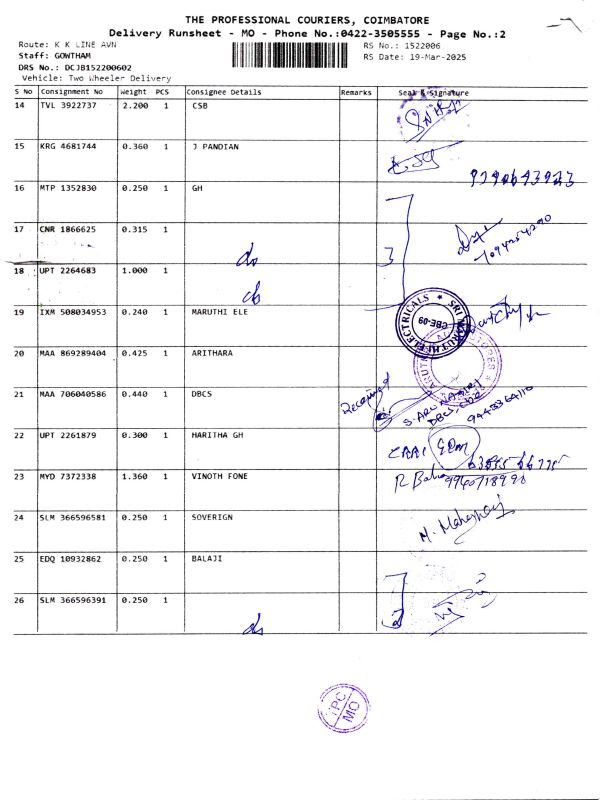 THE PROFESSIONAL COURIERS, COIMBATORE
Delivery Runsheet - MO - Phone No.:0422-3505555 - Page No.:2
Route: K K LINE AVN RS No.: 1522006
Staff: GOWTHAM RS Date: 19-Mar-2025
DRS No.: DCJB152200602
Vehicle: Two Wheeler Delivery
S No Consignment No Weight PCS Consignee Details Remarks Seal & Signature
14 TVL 3922737 2.200 1 CSB
15 KRG 4681744 0.360 1 J PANDIAN
16 MTP 1352830 0.250 1 GH
17 CNR 1866625 0.315 1
do
18 UPT 2264683 1.000 1
do
19 IXM 508034953 0.240 1 MARUTHI ELE
SRI MARUTHI ELECTRICALS CBE-09
20 MAA 869289404 0.425 1 ARITHARA
21 MAA 706040586 0.440 1 DBCS Received
22 UPT 2261879 0.300 1 HARITHA GH
23 MYD 7372338 1.360 1 VINOTH FONE R Babu
24 SLM 366596581 0.250 1 SOVERIGN
25 EDQ 10932862 0.250 1 BALAJI
26 SLM 366596391 0.250 1
do
TPC
MO